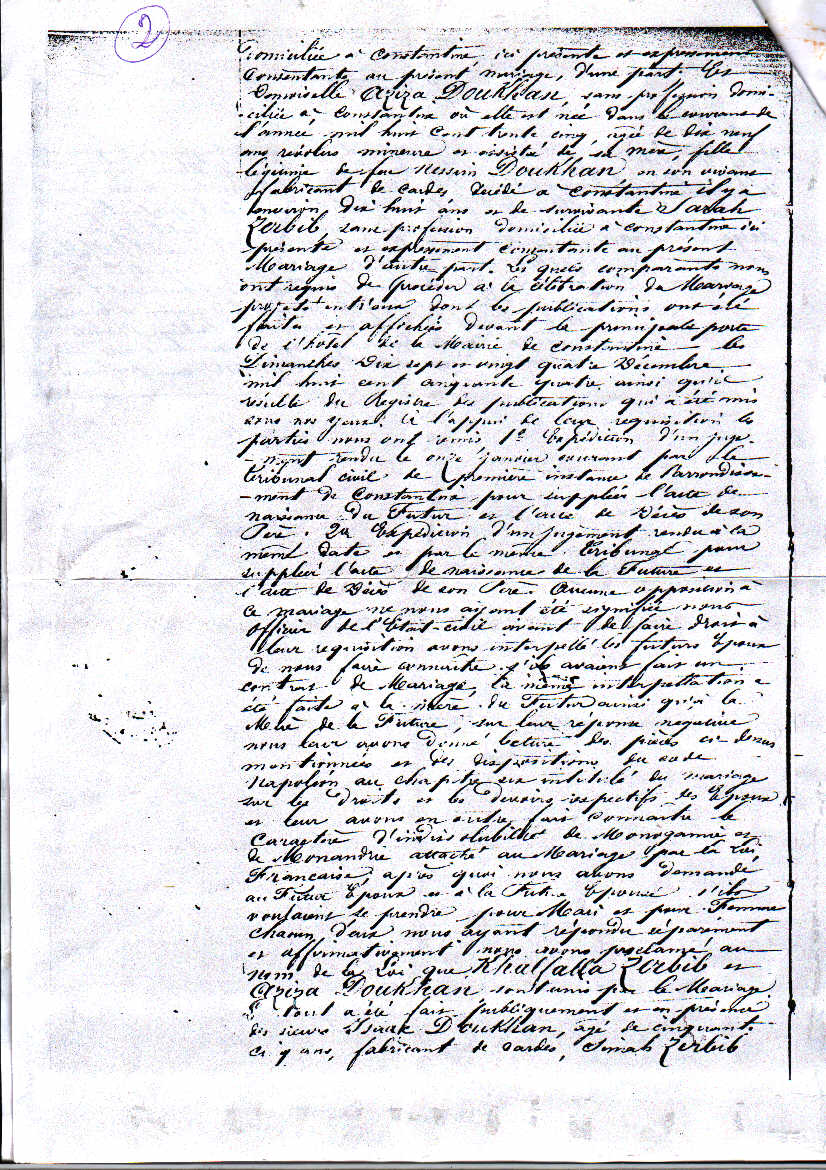 2
domiciliée à Constantine, ici présente et expressément
Consentante au présent mariage, d'une part. Et
Demoiselle Aziza Doukhan, sans profession domi-
-ciliée à Constantine où elle est née dans le courant de
l'année mil huit cent trente cinq, agée de dix neuf
ans révolus mineure et assistée de sa mère, fille
légitime de feu Nessim Doukhan en son vivant
fabricant de cardes décédé à Constantine il y a
environ dix huit ans et de survivante Sarah
Zerbib, sans profession domiciliée à Constantine ici
présente et expressément consentante au présent
Mariage d'autre part. Les quels comparants nous
ont requis de procéder à la célébration du Mariage
projeté entr'eux dont les publications ont été
faites et affichées devant la principale porte
de l'hôtel de la Mairie de Constantine les
Dimanches dix sept et vingt quatre Décembre
mil huit cent cinquante quatre ainsi qu'il
résulte du Registre des publications qui a été mis
sous nos yeux. A l'appui de leur requisition les
parties nous ont remis 1° Expédition d'un juge-
-ment rendu le onze janvier courant par le
tribunal civil de première instance de l'arrondisse-
-ment de Constantine pour suppléer l'acte de
naissance du Futur et l'acte de Décès de son
Père. 2° Expédition d'un jugement rendu à la
même date et par le même tribunal pour
suppléer l'acte de naissance de la Future et
l'acte de Décès de son Père. Aucune opposition à
ce mariage ne nous ayant été signifiée nous
officier de l'Etat-civil avant de faire droit à
leur requisition avons interpellé les futurs Epoux
de nous faire connaître s'ils avaient fait un
contrat de Mariage, la même interpellation a
été faite à la mère du Futur ainsi qu'à la
Mère de la Future, sur leur réponse négative
nous leur avons donné lecture des pièces ci dessus
mentionnées et des dispositions du code
Napoléon au chapitre six intitulé du mariage
sur les droits et les devoirs respectifs des Epoux
et leur avons en outre fait connaître le
Caractère d'indissolubilité de Monogamie et
de Monandrie attaché au Mariage par la Loi
Française, après quoi nous avons demandé
au Futur Epoux et à la Future Epouse s'ils
voulaient se prendre pour Mari et pour Femme
chacun d'eux nous ayant répondu séparément
et affirmativement nous avons proclamé au
nom de la Loi que Khalfalla Zerbib et
Aziza Doukhan sont unis par le Mariage
tout a été fait publiquement et en présence
des sieurs Isaac Doukhan, agé de cinquante
cinq ans, fabricant de cardes, Simah Zerbib